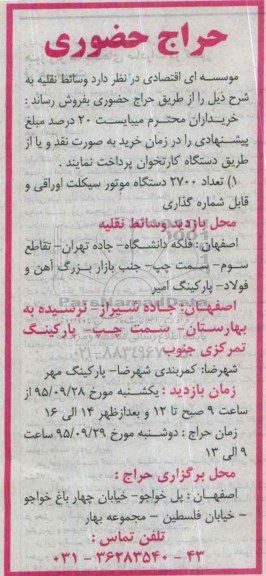 حراج حضوری
موسسه ای اقتصادی در نظر دارد وسائط نقلیه به
شرح ذیل را از طریق حراج حضوری بفروش رساند :
خریداران محترم میبایست ۲۰ درصد مبلغ
پیشنهادی را در زمان خرید به صورت نقد و یا از
طریق دستگاه کارتخوان پرداخت نمایند .
۱) تعداد ۲۷۰۰ دستگاه موتور سیکلت اوراقی و
قابل شماره گذاری
محل بازدید وسائط نقلیه
اصفهان : فلکه دانشگاه- جاده تهران- تقاطع
سوم- سمت چپ- جنب بازار بزرگ آهن و
فولاد- پارکینگ امیر
اصفهان: جاده شیراز- نرسیده به
بهارستان- سمت چپ- پارکینگ
تمرکزی جنوب
شهرضا: کمربندی شهرضا- پارکینگ مهر
زمان بازدید : یکشنبه مورخ ۹۵/۰۹/۲۸ از
ساعت ۹ صبح تا ۱۲ و بعدازظهر ۱۴ الی ۱۶
زمان حراج : دوشنبه مورخ ۹۵/۰۹/۲۹ ساعت
۹ الی ۱۳
محل برگزاری حراج :
اصفهان : پل خواجو- خیابان چهار باغ خواجو
- خیابان فلسطین - مجموعه بهار
تلفن تماس :
۰۳۱ - ۳۶۲۸۳۵۴۰ - ۴۳